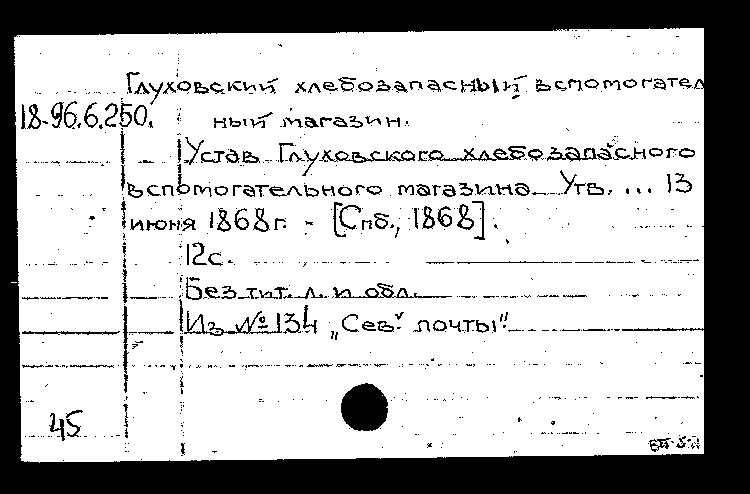 Глуховский хлебозапасный вспомогател
18-96.6.250. ный магазин.
Устав Глуховского хлебозапасного
вспомогательного магазина. Утв. ... 13
июня 1868г. - [Спб., 1868].
12с.
Без тит. л. и обл.
Из № 134 „Сев. почты".
45